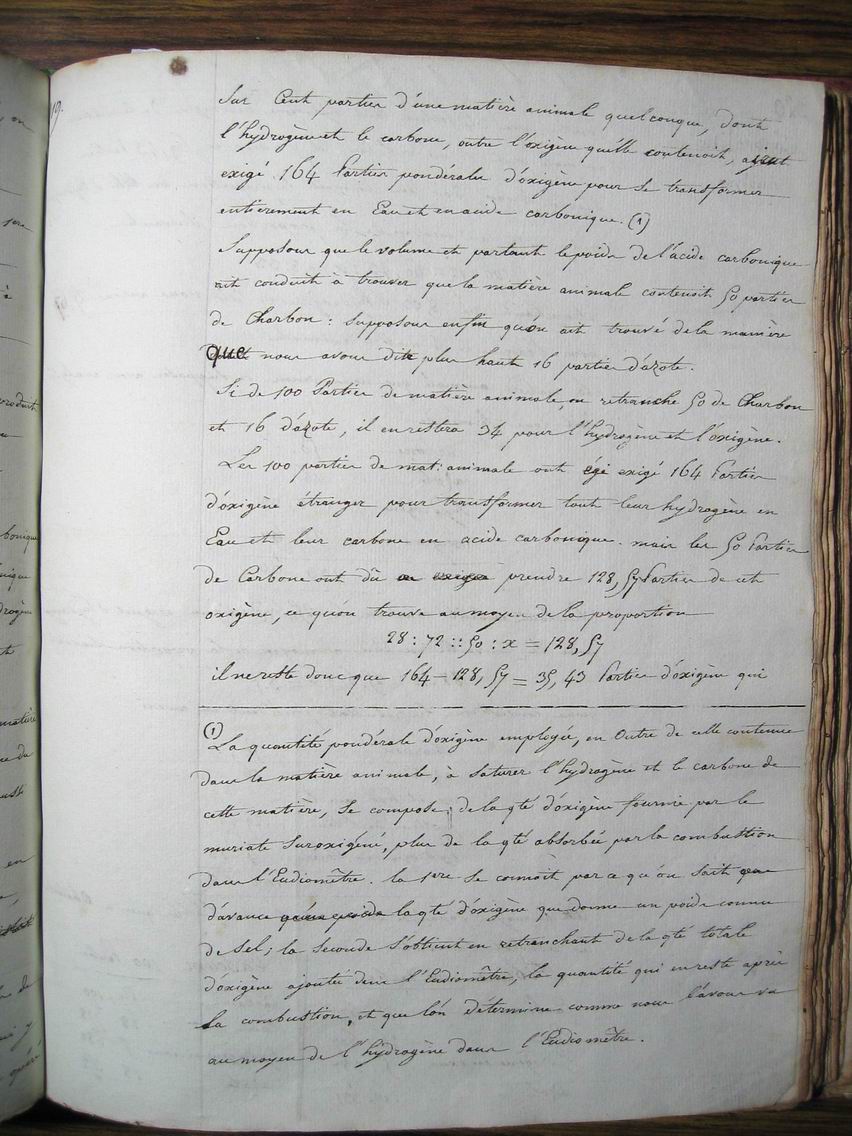 Sur Cent parties d'une matière animale quelconque, dont
l'hydrogène et le carbone, outre l'oxigène qu'elle contenoit, aient
exigé 164 Parties pondérales d'oxigène pour se transformer
entièrement en Eau et en acide carbonique. (1)
Supposons que le volume et partant le poids de l'acide carbonique
ait conduit à trouver que la matière animale contenoit 50 parties
de Charbon : supposons enfin qu'on ait trouvé de la manière
que nous avons dite plus haut 16 parties d'azote.
Si de 100 Parties de matière animale, on retranche 50 de Charbon
et 16 d'azote, il en restera 34 pour l'hydrogène et l'oxigène.
Les 100 parties de mat: animale ont exigé 164 Parties
d'oxigène étranger pour transformer tout leur hydrogène en
Eau et leur carbone en acide carbonique. mais les 50 Parties
de Carbone ont dû prendre 128,57 Parties de cet
oxigène, ce qu'on trouve au moyen de la proportion
28 : 72 :: 50 : x = 128,57
il ne reste donc que 164 — 128,57 = 35,43 Parties d'oxigène qui
(1)
La quantité pondérale d'oxigène employée, en Outre de celle contenue
dans la matière animale, à Saturer l'hydrogène et le carbone de
cette matière, se compose, de la qté d'oxigène fournie par le
muriate Suroxigéné, plus de la qté absorbée par la combustion
dans l'Eudiomètre. la 1ere se connoît parce qu'on sait
d'avance la qté d'oxigène que donne un poids connu
de Sel; la Seconde s'obtient en retranchant de la qté totale
d'oxigène ajoutée dans l'Eudiomètre, la quantité qui en reste après
la combustion, et que l'on détermine comme nous l'avons vu
au moyen de l'hydrogène dans l'Eudiomètre.